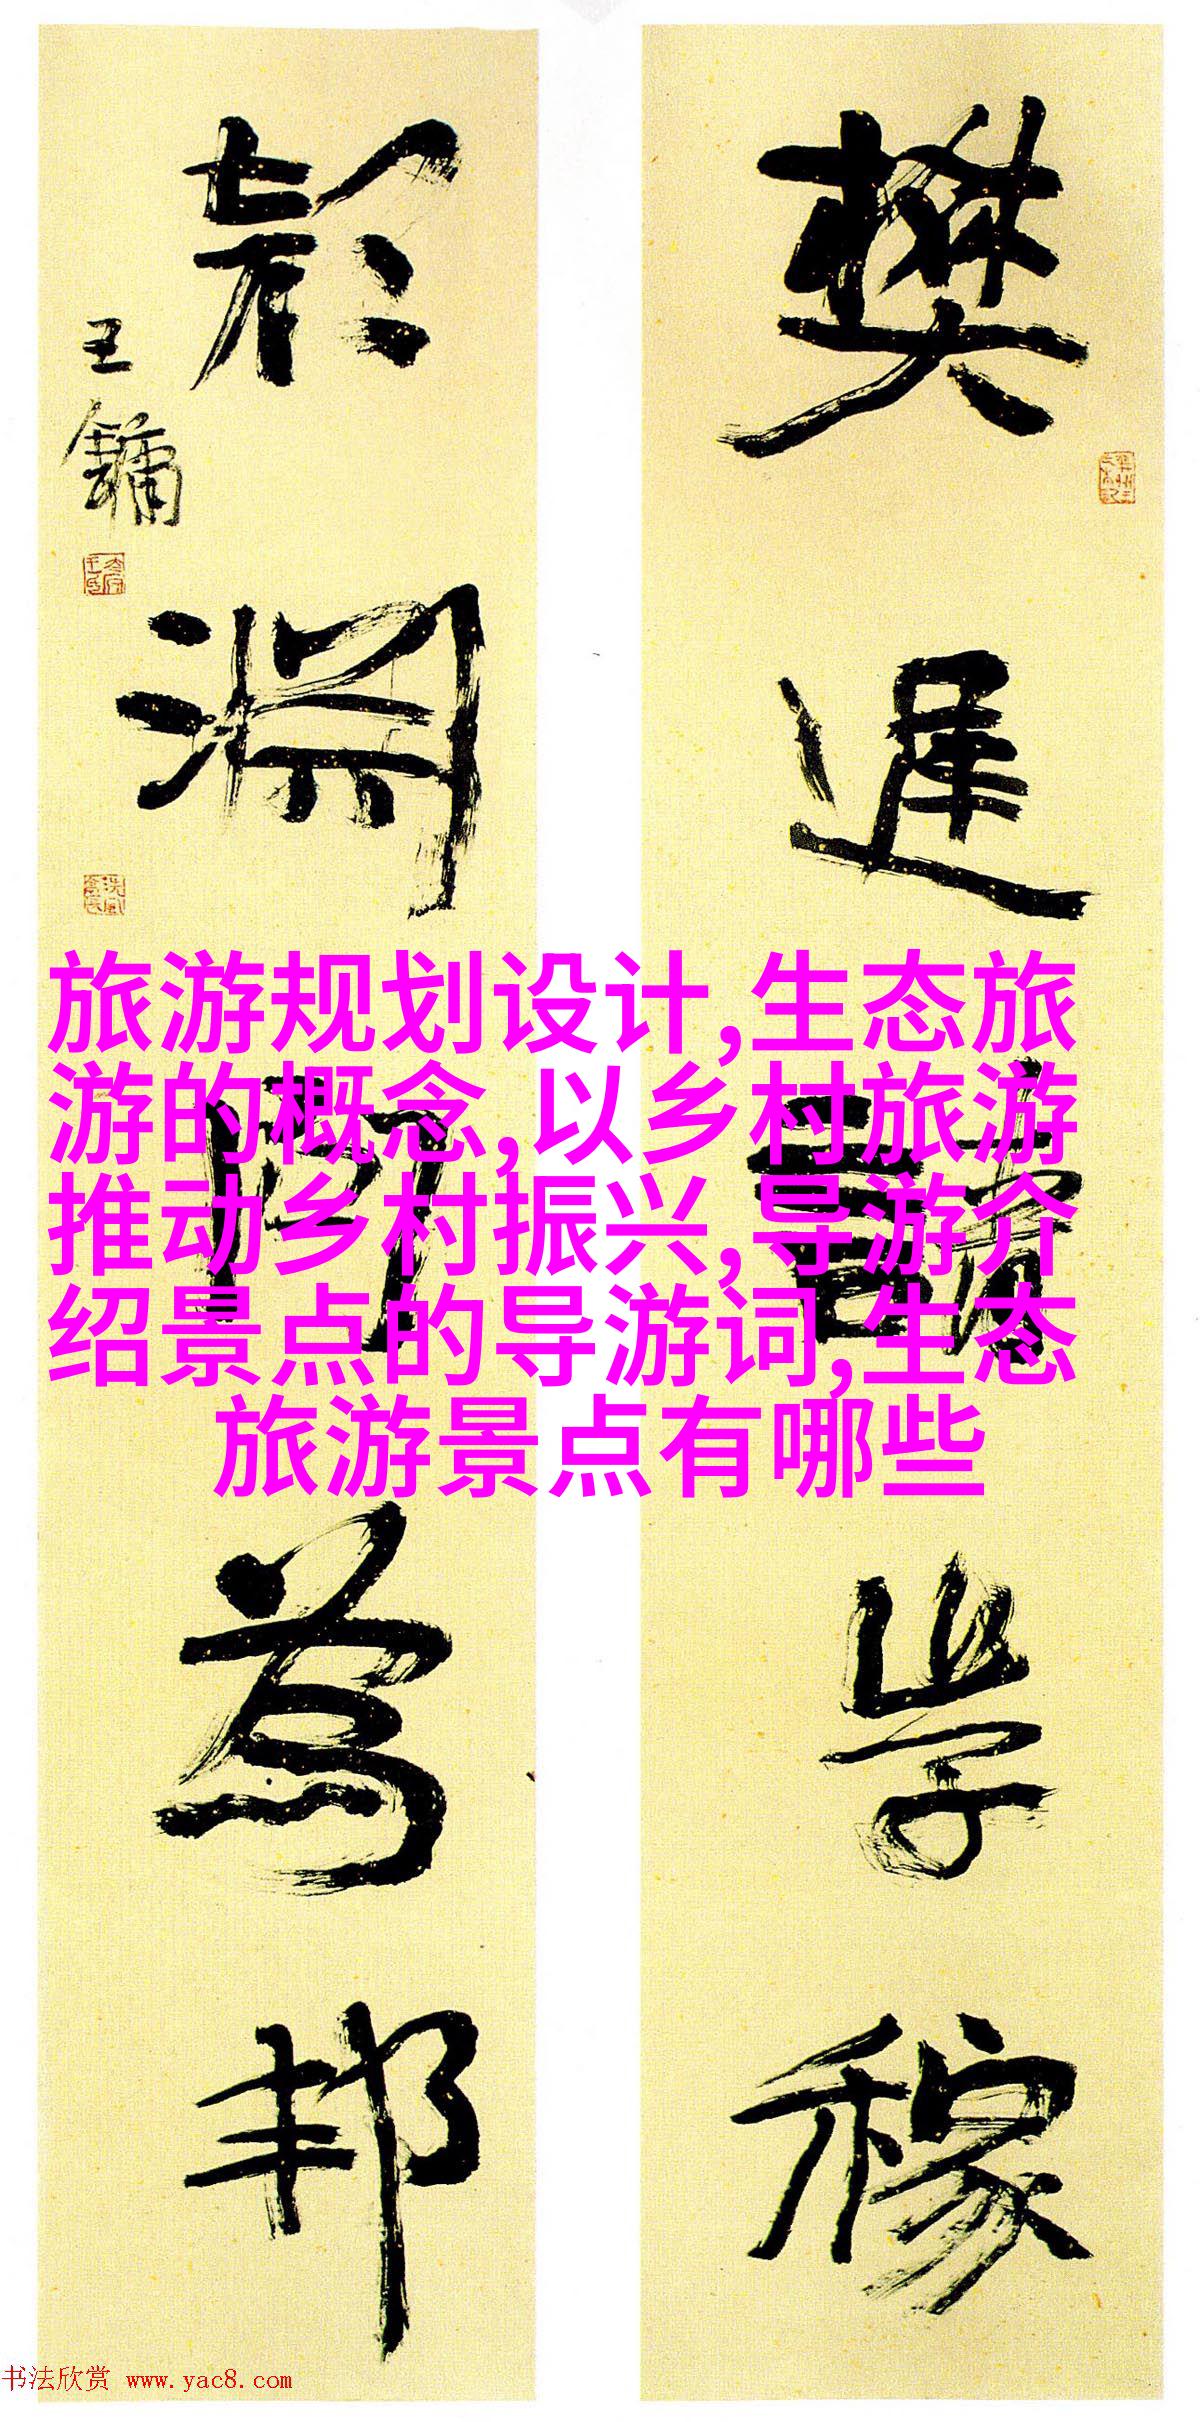 樊遲請學稼
顏淵問為邦
王鏞
旅游规划设计,生态旅
游的概念,以乡村旅游
推动乡村振兴,导游介
绍景点的导游词,生态
旅游景点有哪些
书法欣赏 www.yac8.com